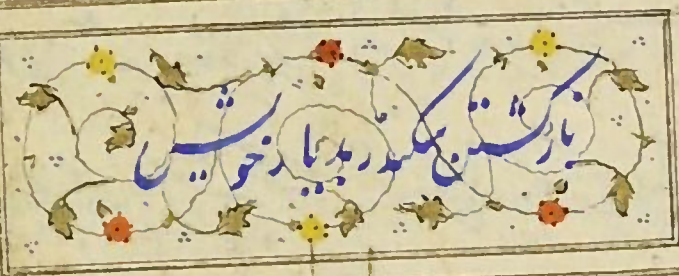 بازگشتن سکندر بدیار خویش